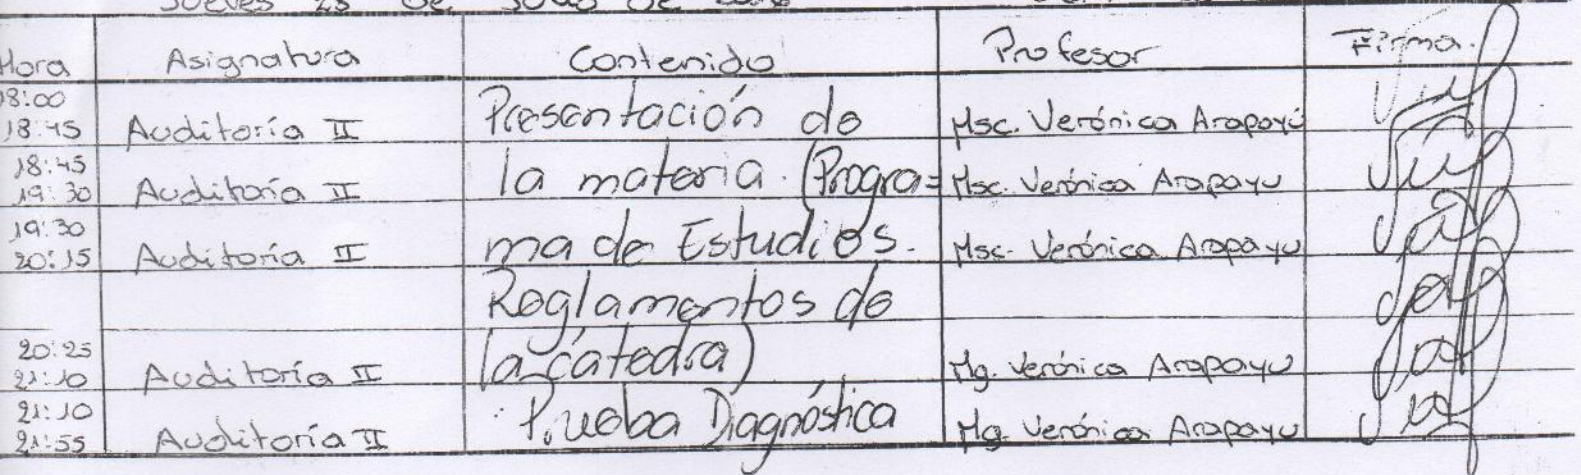 Jueves 28 de Julio de
Hora Asignatura Contenido Profesor Firma.
18:00
18:45 Auditoría II Presentación de Msc. Verónica Arapayú
18:45
19:30 Auditoría II la materia. (Progra= Msc. Verónica Arapayu
19:30
20:15 Auditoría II ma de Estudios. Msc. Verónica Arapayu
Reglamentos de
20:25
21:10 Auditoría II la cátedra) Mg. Verónica Arapayu
21:10
21:55 Auditoría II Prueba Diagnóstica Mg. Verónica Arapayu